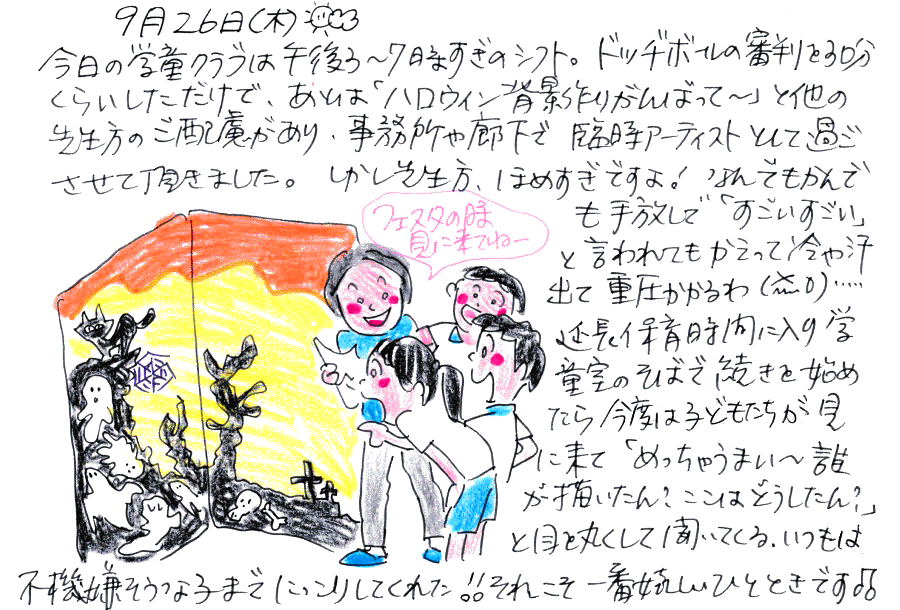 9月26日(木)
今日の学童クラブは午後3〜7時すぎのシフト。ドッヂボールの審判を30分
くらいしただけで、あとは「ハロウィン背景作りがんばって〜」と他の
先生方のご配慮があり、事務所や廊下で臨時アーティストとして過ご
させて頂きました。しかし先生方、ほめすぎですよ!なんでもかんで
も手放しで「すごいすごい」
と言われてもかえって冷や汗
出て重圧かかるわ(
延長保育時間に入り学
童室のそばで続きを始め
たら今度は子どもたちが見
に来て「めっちゃうまい〜誰
が描いたん?ここはどうしたん?」
と目を丸くして聞いてくる、いつもは
不機嫌そうな子までにっこりしてくれた!!それこそ一番嬉しいひとときです♫
フェスタの時
見に来てねー